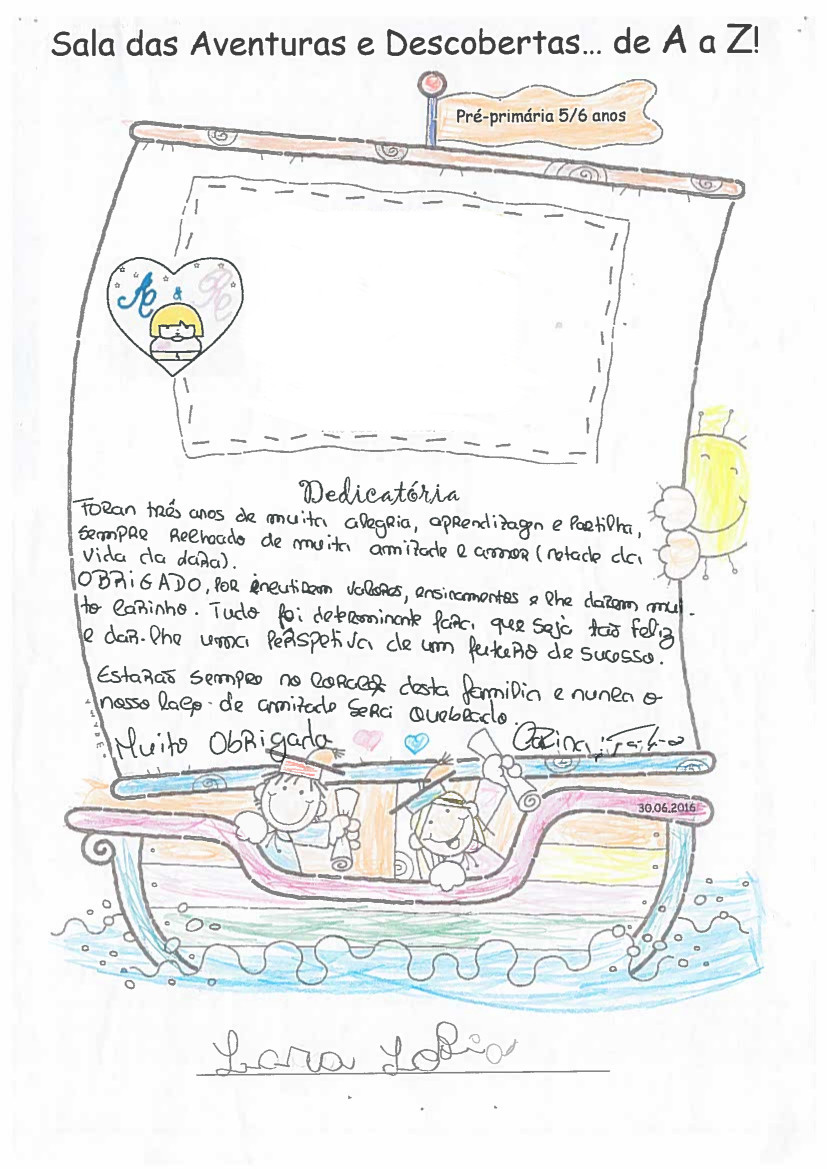 Sala das Aventuras e Descobertas... de A a Z!
Pré-primária 5/6 anos
A & R
Dedicatória
Foran três anos de muita alegria, aprendizagen e Partilha,
sempre recheado de muita amizade e amor (metade da
vida da dara).
OBRIGADO, por incutirem valores, ensinamentos e lhe darem mui-
to carinho. Tudo foi determinante para que seja tão feliz
e dar-lhe uma Perspetiva de um futuro de sucesso.
Estarão sempre no coração desta familia e nunca o
nosso laço de amizade será quebrado.
Muito Obrigado
Carina
30.06.2016
Lara